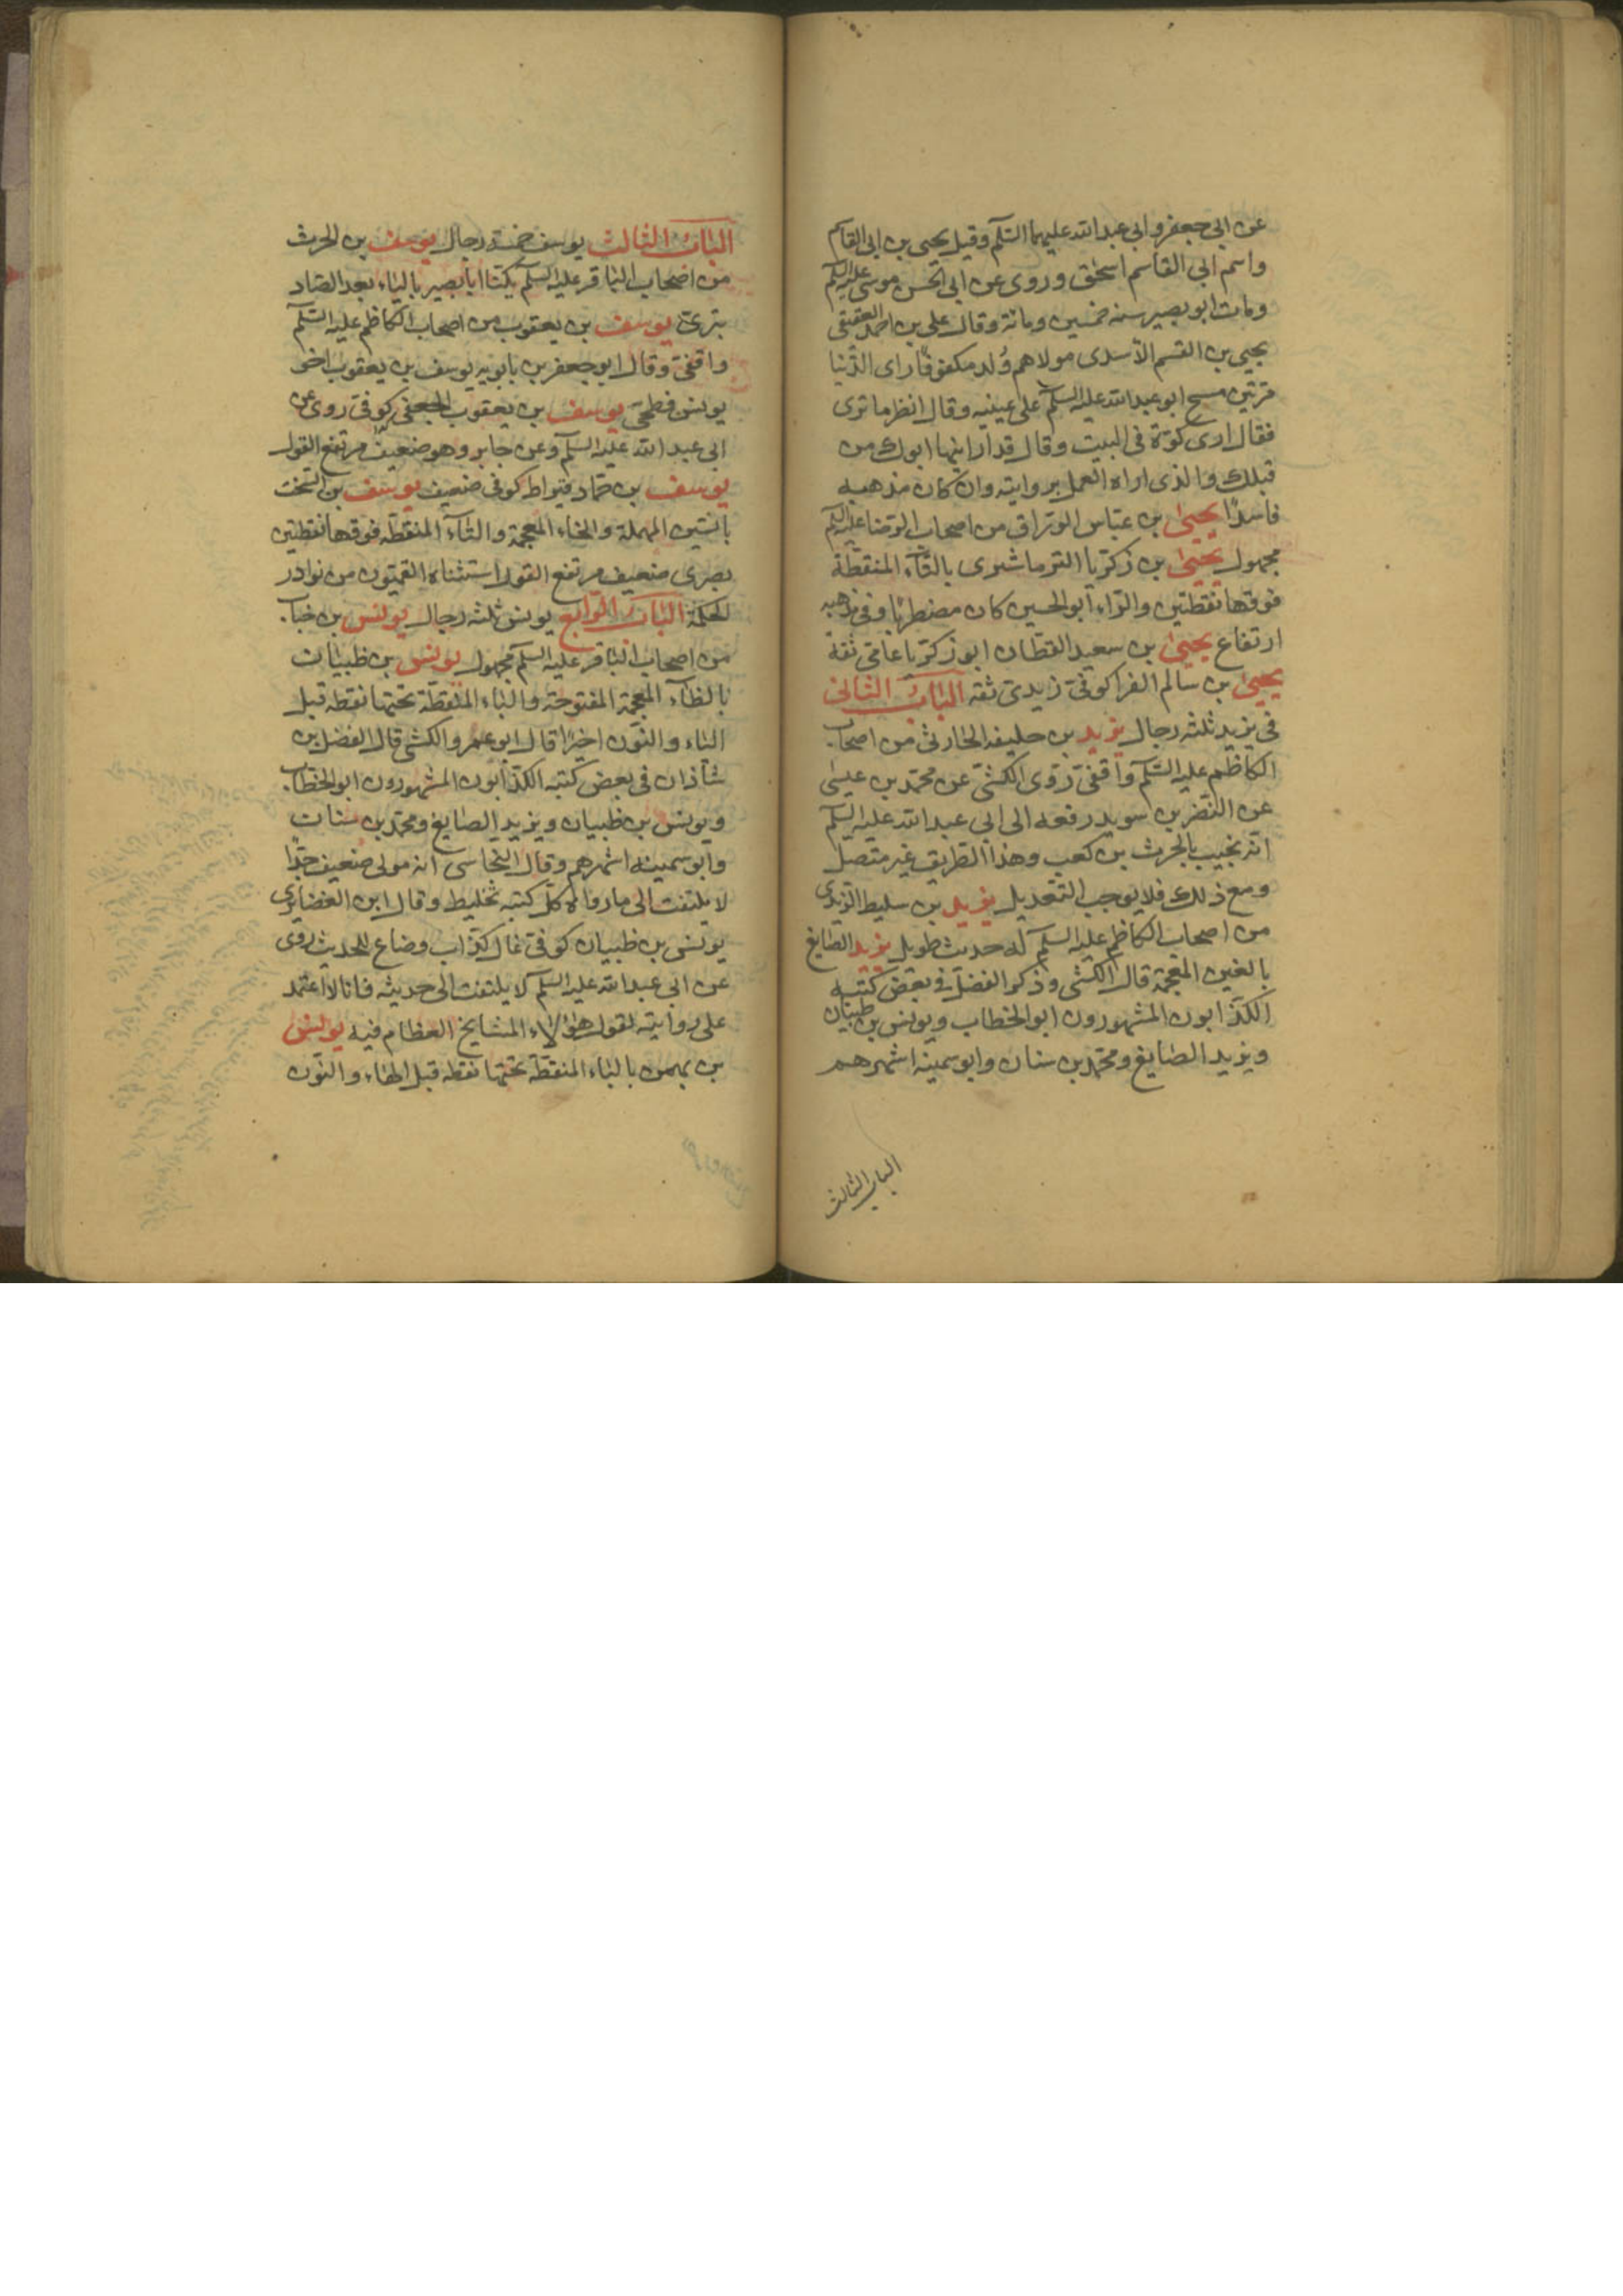 عن ابي جعفر وابي عبد الله عليهما السلم وقيل يحيى بن ابي القاسم
واسم ابي القاسم اسحق وروى عن ابي الحسن موسى عليه السلم
ومات ابو بصير سنه خمسين ومائة وقال علي بن احمد العقيقي
يحيى بن القسم الاسدى مولاهم وُلد مكفوفا راى الدنيا
مرتين مسح ابو عبد الله عليه السلم على عينيه وقال انظر ما ترى
فقال ارى كوّة في البيت وقال قد ارانيها ابوك من
قبلك والذى اراه العمل بروايته وان كان مذهبه
فاسدًا يحيى بن عباس الوراق من اصحاب الرضا عليه السلم
مجهول يحيى بن زكريا الترماشيرى بالتاء المنقطة
فوقها نقطتين والراء ابو الحسين كان مضطربا وفي مذهبه
ارتفاع يحيى بن سعيد القطان ابو زكريا عامي ثقة
يحيى بن سالم الفرا كوفي زيدي ثقه الباب الثانى
في يزيد ثلثه رجال يزيد بن خليفه الحارثي من اصحاب
الكاظم عليه السلم واقفي روى الكشي عن محمد بن عيسى
عن النضر بن سويد رفعه الى ابي عبد الله عليه السلم
انه نجيب بالحرث بن كعب وهذا الطريق غير متصل
ومع ذلك فلا يوجب التعديل يزيد بن سليط الزيدى
من اصحاب الكاظم عليه السلم له حديث طويل يزيد الصايغ
بالغين المعجمة قال الكشي وذكر الفضل في بعض كتبه
الكذابون المشهورون ابو الخطاب ويونس بن ظبيان
ويزيد الصايغ ومحمد بن سنان وابو سمينه اشهرهم
الباب الثالث
الباب الثالث يوسف خمسة رجال يوسف بن الحرث
من اصحاب الباقر عليه السلم يكنا ابا بصير بالياء بعد الصاد
بترى يوسف بن يعقوب من اصحاب الكاظم عليه السلم
واقفي وقال ابو جعفر بن بابويه يوسف بن يعقوب اخو
يونس فطحي يوسف بن يعقوب الجعفي كوفي روى عن
ابي عبد الله عليه السلم وعن جابر وهو ضعيف مرتفع القول
يوسف بن حماد كوفي ضعيف يوسف بن السخت
بالسين المهملة والخاء المعجمة والتاء المنقطه فوقها نقطتين
بصرى ضعيف مرتفع القول استثناه القميون من نوادر
الحكمة الباب الرابع يونس ثلثه رجال يونس بن خباب
من اصحاب الباقر عليه السلم مجهول يونس بن ظبيان
بالظاء المعجمة المفتوحة والباء المنقطة تحتها نقطه قبل
الياء والنون اخيرًا قال ابو عمرو الكشي قال الفضل بن
شاذان في بعض كتبه الكذابون المشهورون ابو الخطاب
ويونس بن ظبيان ويزيد الصايغ ومحمد بن سنان
وابو سمينه اشهرهم وقال النجاشي انه مولى ضعيف جدًا
لا يلتفت الى ما رواه كل كتبه تخليط وقال ابن الغضايرى
يونس بن ظبيان كوفي غال كذاب وضاع للحديث روى
عن ابي عبد الله عليه السلم لا يلتفت الى حديثه فانا لا اعتمد
على روايته لقول هؤلاء المشايخ العظام فيه يونس
بن بهمن بالباء المنقطة تحتها نقطه قبل الهاء والنون